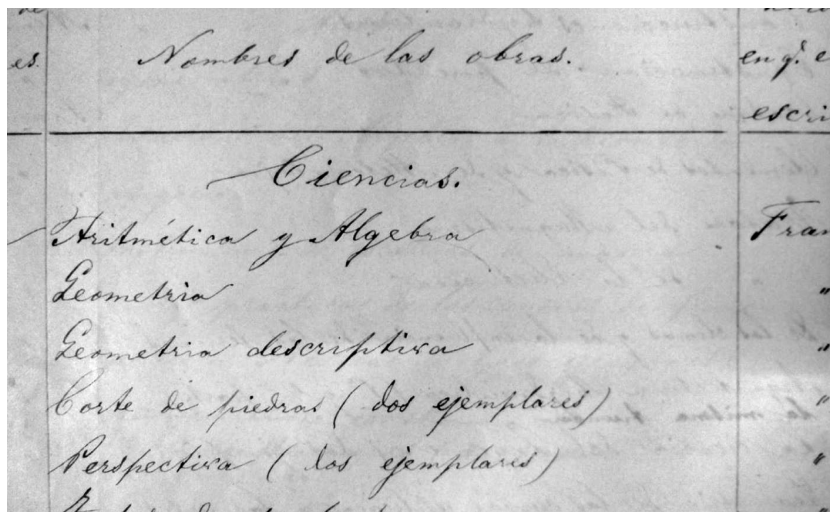 es. Nombres de las obras. en q.e e
escri
Ciencias.
Aritmética y Algebra Fran
Geometria "
Geometria descriptiva "
Corte de piedras (dos ejemplares) "
Perspectiva (dos ejemplares) "